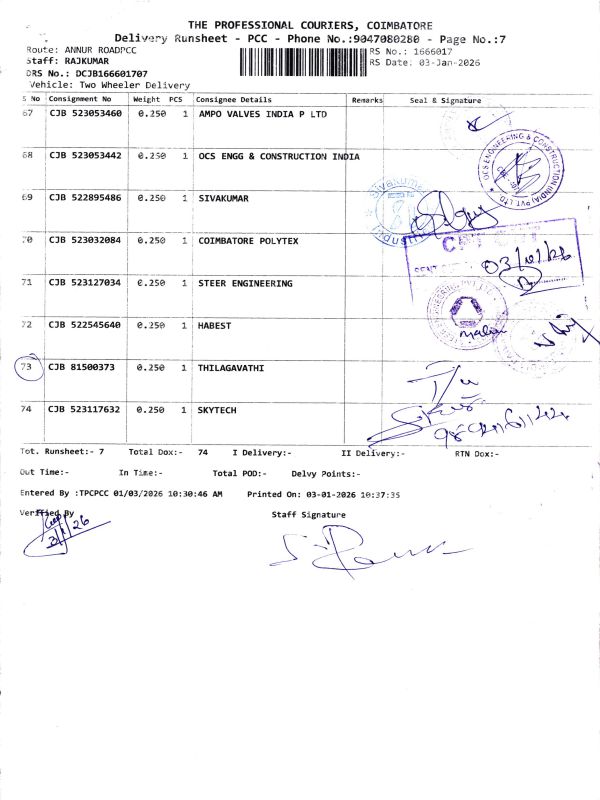 THE PROFESSIONAL COURIERS, COIMBATORE
Delivery Runsheet - PCC - Phone No.:9047080280 - Page No.:7
Route: ANNUR ROADPCC RS No.: 1666017
Staff: RAJKUMAR RS Date: 03-Jan-2026
DRS No.: DCJB166601707
Vehicle: Two Wheeler Delivery
S No Consignment No Weight PCS Consignee Details Remarks Seal & Signature
67 CJB 523053460 0.250 1 AMPO VALVES INDIA P LTD
68 CJB 523053442 0.250 1 OCS ENGG & CONSTRUCTION INDIA
OCS ENGINEERING & CONSTRUCTION (INDIA) PVT. LTD
69 CJB 522895486 0.250 1 SIVAKUMAR
Sivakumar
Industri
70 CJB 523032084 0.250 1 COIMBATORE POLYTEX
03/01/26
71 CJB 523127034 0.250 1 STEER ENGINEERING
72 CJB 522545640 0.250 1 HABEST
73 CJB 81500373 0.250 1 THILAGAVATHI
74 CJB 523117632 0.250 1 SKYTECH
Tot. Runsheet:- 7 Total Dox:- 74 I Delivery:- II Delivery:- RTN Dox:-
Out Time:- In Time:- Total POD:- Delvy Points:-
Entered By :TPCPCC 01/03/2026 10:30:46 AM Printed On: 03-01-2026 10:37:35
Verified By Staff Signature
3/1/26